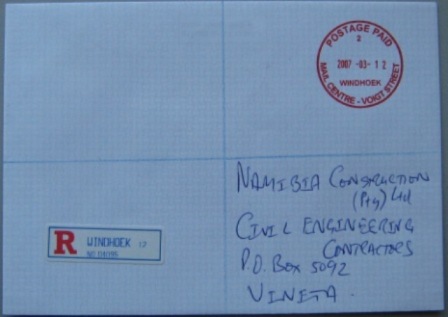 POSTAGE PAID
2
2007 -03- 12
WINDHOEK
MAIL CENTRE - VOIGT STREET
NAMIBIA CONSTRUCTION
(Pty) Ltd
CIVIL ENGINEERING
CONTRACTORS
P.O. Box 5092
VINETA.
R WINDHOEK